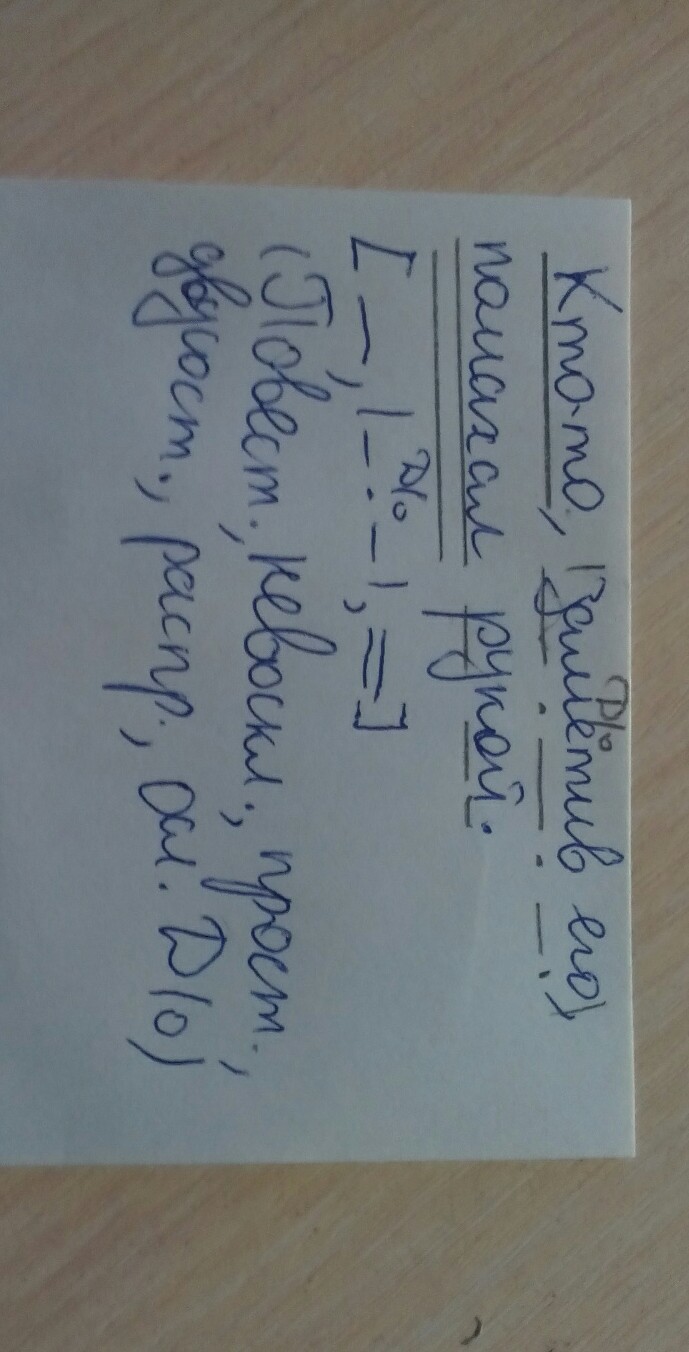 Кто-то, |заметив его|,
Д/о
помахал рукой.
[ —, |—·—|, = ]
Д/о
(Повест., невоскл., прост.,
двусост., распр., осл. Д/о)